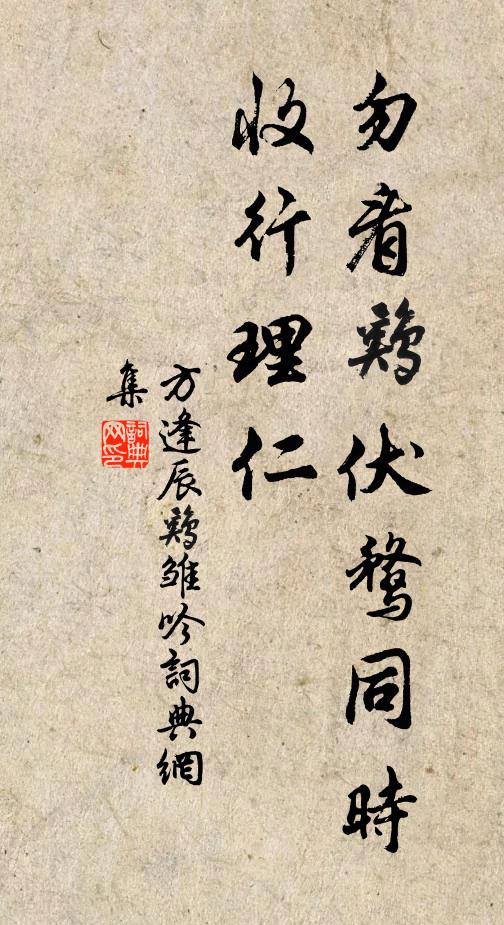 勿看鷄伏鶩同時
收行理仁
方逢辰鷄雏吟詞典網
集
詞典
网印